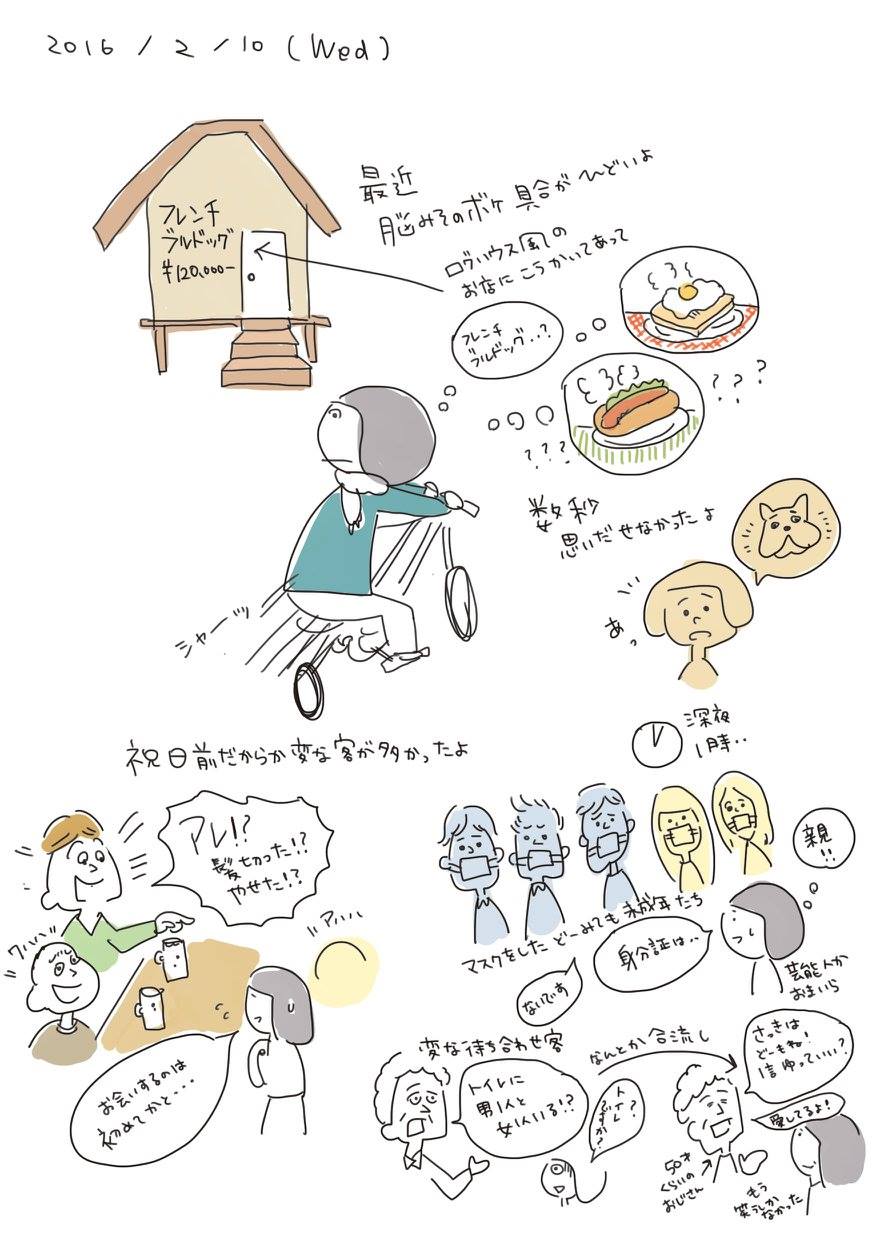 2016 / 2 / 10 (Wed)
最近
脳みそのボケ具合がひどいよ
フレンチ
ブルドッグ
¥120,000-
ログハウス風の
お店にこうかいてあって
フレンチ
ブルドッグ..?
???
???
数秒
思いだせなかったよ
あっ
シャーッ
祝日前だからか変な客が多かったよ
深夜
1時..
アレ!?
髪切った!?
やせた!?
ワハハ
アハハ
お会いするのは
初めてかと・・・
親!!
マスクをしたどーみても未成年たち
身分証は..
ないです
芸能人か
おまいら
変な待ち合わせ客
トイレに
男1人と
女1人いる!?
トイレ
ですか?
なんとか合流し
さっきは
どーもね!
信ゆっていい?
愛してるよ!
50才
くらいの
おじさん
もう
笑うしか
なかった